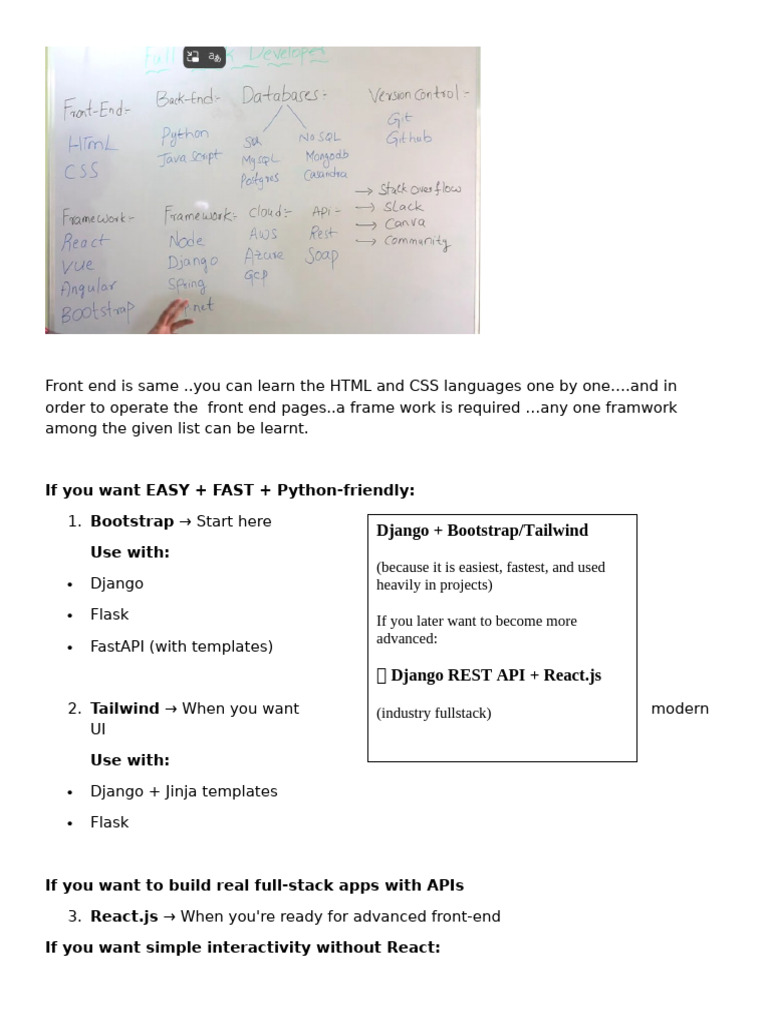 Full Developer
Front-End:- Back-End:- Databases:- Version Control:-
HTML Python SQL NoSQL Git
CSS Java Script MySQL Mongodb Github
Postgres Casandra
→ Stack overflow
→ Slack
→ Canva
→ Community
Framework:- Framework:- Cloud:- Api:-
React Node AWS Rest
Vue Django Azure Soap
Angular Spring GCP
Bootstrap .net
Front end is same ..you can learn the HTML and CSS languages one by one….and in
order to operate the  front end pages..a frame work is required …any one framwork
among the given list can be learnt.
If you want EASY + FAST + Python-friendly:
1. Bootstrap → Start here
Use with:
• Django
• Flask
• FastAPI (with templates)
2. Tailwind → When you want modern
UI
Use with:
• Django + Jinja templates
• Flask
Django + Bootstrap/Tailwind
(because it is easiest, fastest, and used
heavily in projects)
If you later want to become more
advanced:
Django REST API + React.js
(industry fullstack)
If you want to build real full-stack apps with APIs
3. React.js → When you're ready for advanced front-end
If you want simple interactivity without React: